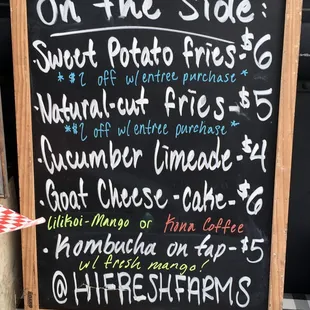 On the Side:
· Sweet Potato fries - $6
*$2 off w/entree purchase*
· Natural-cut fries - $5
*$2 off w/entree purchase*
· Cucumber limeade - $4
· Goat Cheese-cake - $6
Lilikoi-Mango or Kona Coffee
· Kombucha on tap - $5
w/ fresh mango!
@HIFRESHFARMS